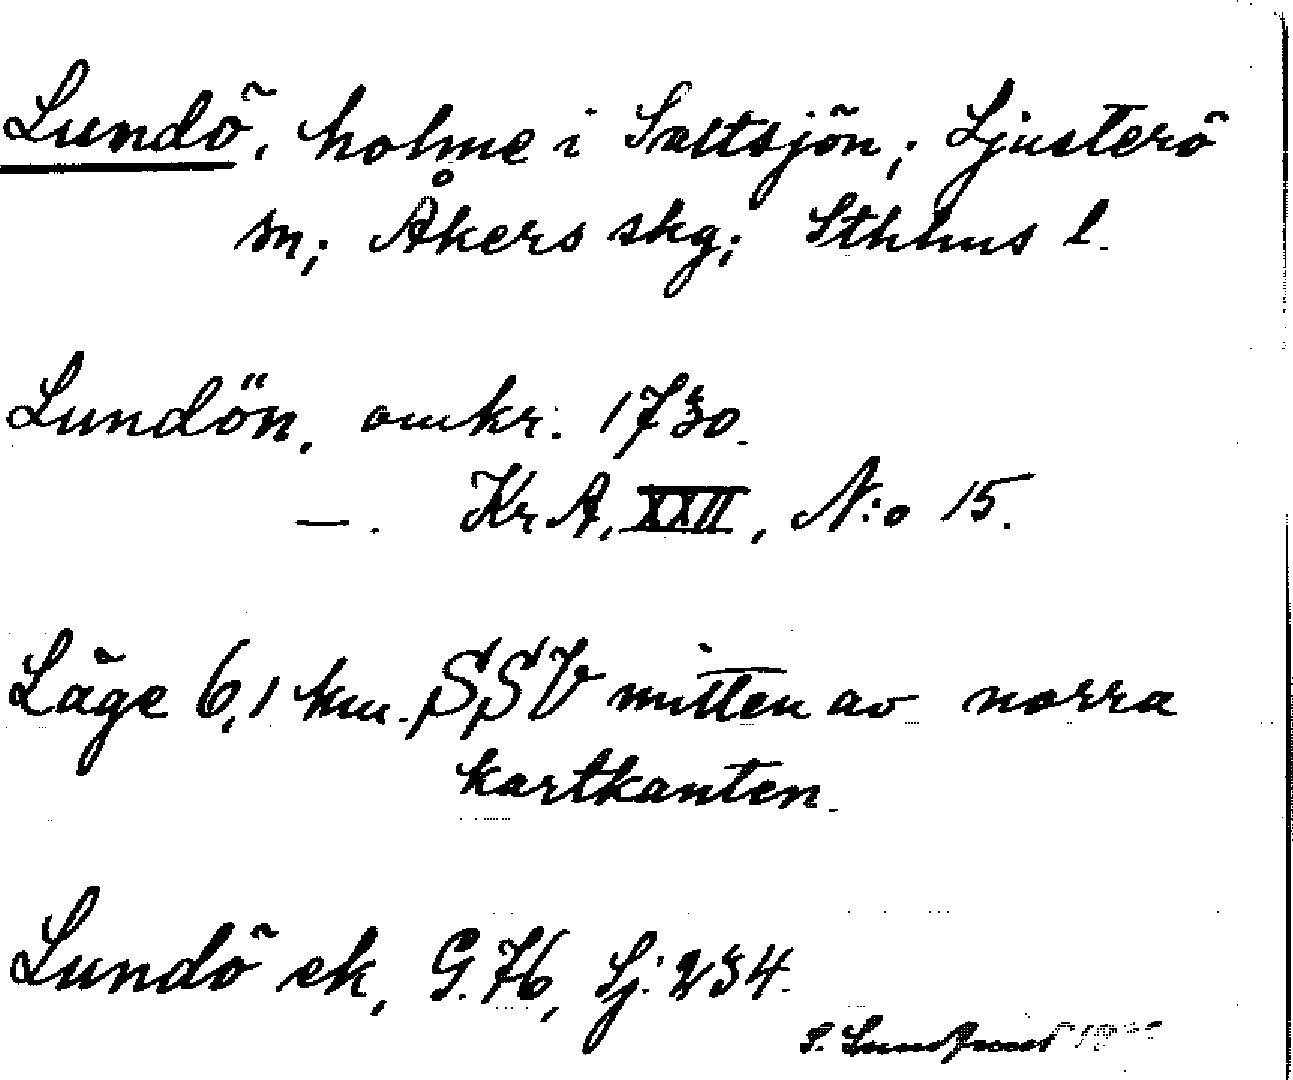 Lundö, holme i Saltsjön; Ljusterö
sn; Åkers skg; Sthlms l.
Lundön, omkr. 1730.
—. KrA, XXII, N:o 15.
Läge 6,1 km. SSV mitten av norra
kartkanten.
Lundö ek, G.76, Lj: 234.